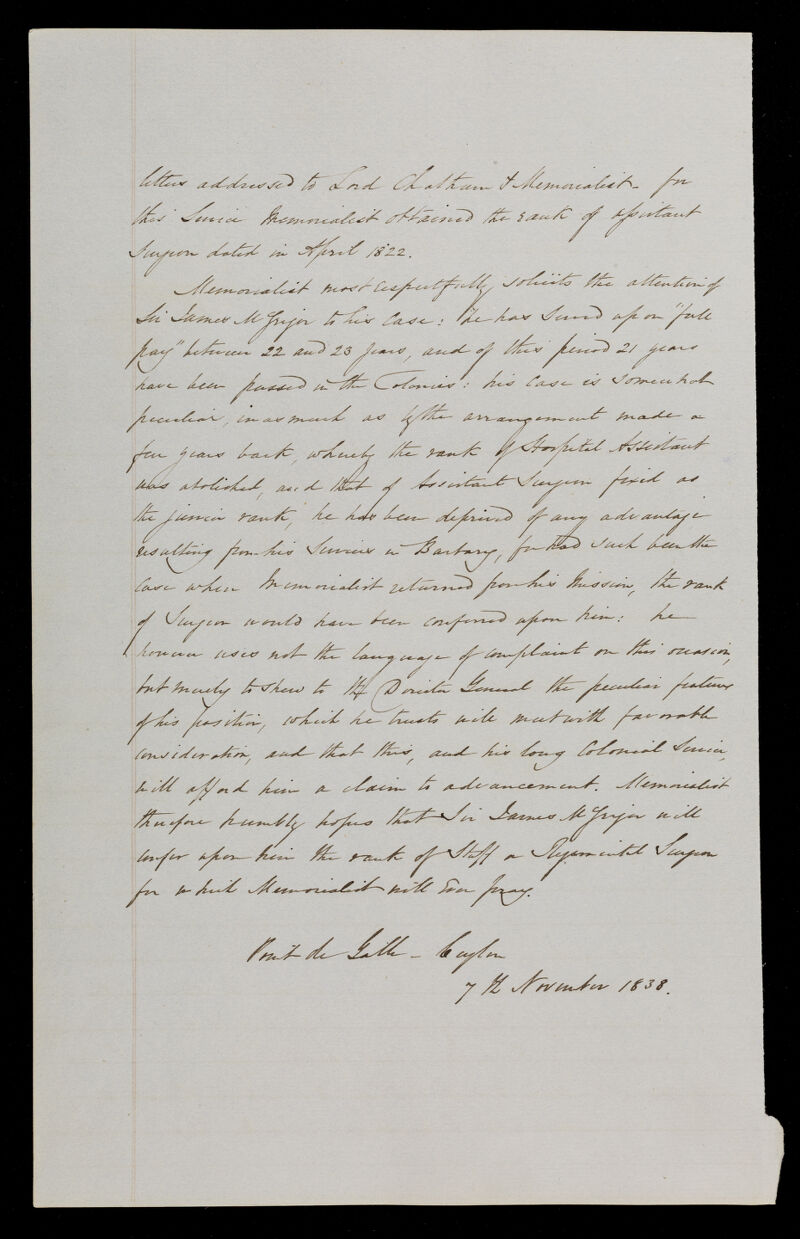 letters addressed to Lord Chatham & Memorialist - for
this Service Memorialist obtained the rank of assistant
Surgeon dated in April 1822.
Memorialist most respectfully solicits the attention of
Sir James McGrigor to his Case: he has Served upon "full
pay" between 22 and 23 years, and of this period 21 years
have been passed in the Colonies: his case is somewhat
peculiar, in as much as by the arrangement made a
few years back, whereby the rank of Hospital Assistant
was abolished, and that of Assistant Surgeon fixed as
the junior rank, he has been deprived of any advantage
resulting from his Services in Barbary, for had such been the
case when Memorialist returned from his Mission, the rank
of Surgeon would have been conferred upon him: he
however uses not the language of complaint on this occasion,
but merely to shew to the Director General the peculiar features
of his position, which he trusts will meet with favorable
consideration, and that this, and his long Colonial Service,
will afford him a claim to advancement. Memorialist
therefore humbly hopes that Sir James McGrigor will
confer upon him the rank of Staff or Regimental Surgeon
for which Memorialist will Ever pray.
Point de Galle - Ceylon
7th November 1838.